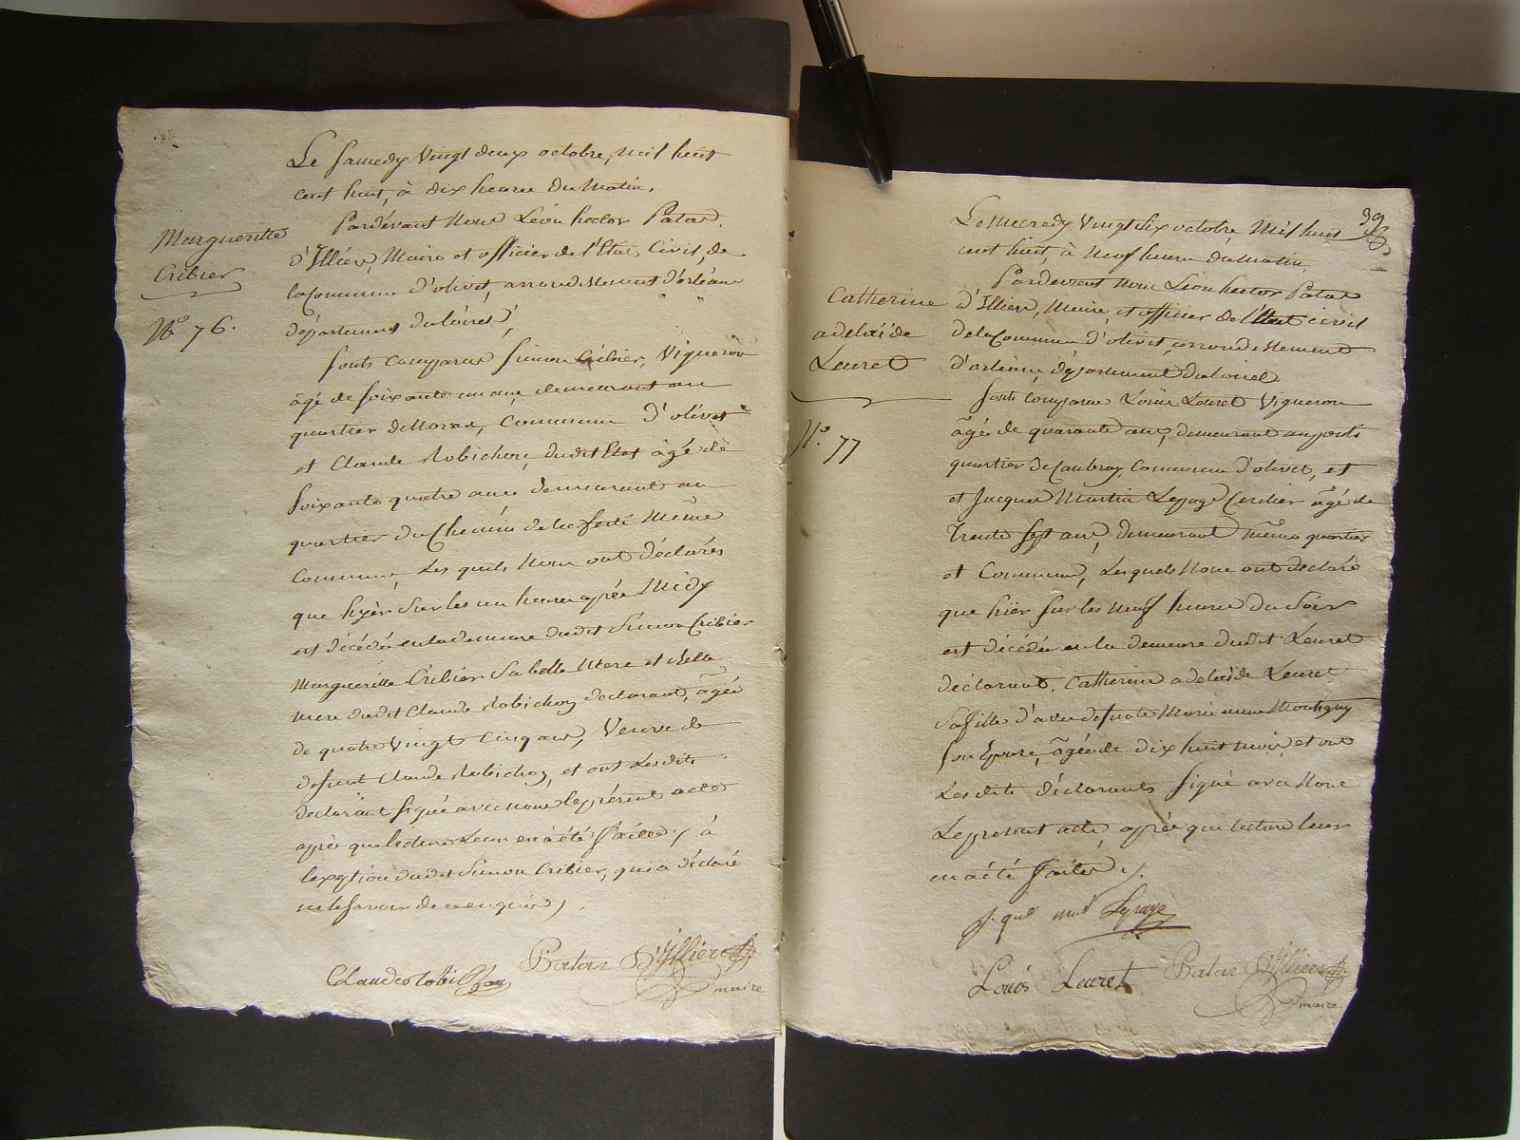 Marguerite
Cribier
N.º 76.
Le samedy vingt deux octobre, mil huit
cent huit, à dix heures du matin,
Pardevant Nous Léon hector Patas
d'Illiers, Maire et officier de l'Etat Civil, de
la Commune d'olivet, arrondissement d'orléans
département du loiret,
sont comparus Simon Cribier, Vigneron
âgé de soixante un ans, demeurant au
quartier de , Commune d'olivet
et Claude Robichon, dudit Etat âgé de
soixante quatre ans demeurant au
quartier du Chemin de la ferté même
Commune, Les quels Nous ont déclarés
que hyer sur les une heure après Midy
est décédée en la demeure dudit Simon Cribier
Marguerite Cribier Sa belle Mere et belle
mere dudit Claude Robichon déclarant, âgée
de quatre vingt cinq ans, Veuve de
defunt Claude Robichon, et ont Lesdits
déclarant signé avec nous le présent acte
après que lecture Leur en a été faitte, à
l'exeption dudit Simon Cribier, qui a déclaré
ne le savoir de ce enquis,
Claude robichon
Patas D'Illiers
maire
39
Catherine
adelaïde
Leuret
N.º 77
Le mecredy vingt six octobre Mil huit
cent huit, à neuf heures du matin,
Pardevant Nous Léon hector Patas
d'Illiers, Maire, et officier de l'Etat civil
de la Commune d'olivet, arrondissement
d'orléans, département du loiret
sont comparus Louis Leuret Vigneron
âgé de quarante ans, demeurant au
quartier de Caubray, Commune d'olivet, et
et Jacques Martin Lepage Cerclier âgé de
Trente sept ans, demeurant même quartier
et Commune, Lesquels Nous ont déclaré
que hier sur les neuf heures du Soir
est décédée en la demeure dudit Leuret
déclarant, Catherine adelaïde Leuret
Sa fille d'avec defunte Marie anne Montigny
son Epouse, âgée de dix huit mois, et ont
Lesdits déclarants signé avec Nous
Le present acte, après que lecture leur
en a été faitte.
Lepage
Louis Leuret
Patas D'Illiers
maire